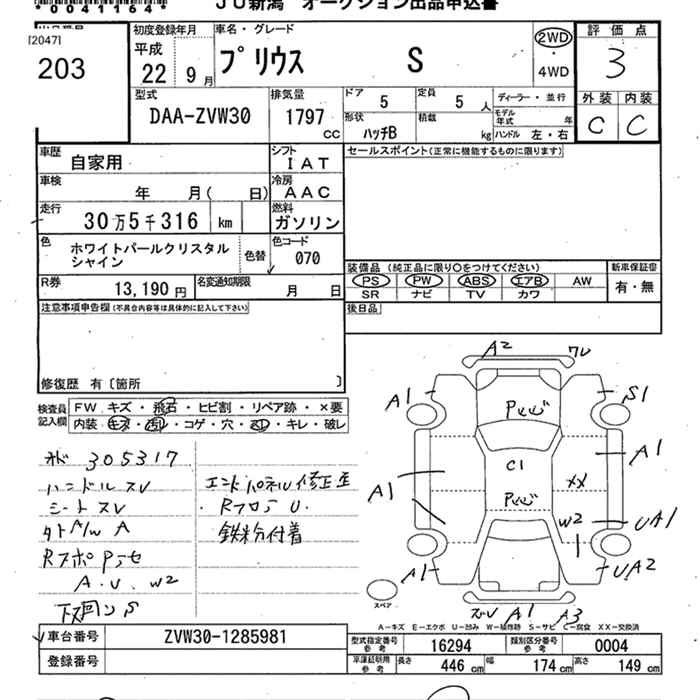 *0041164*
JU新潟 オークション出品申込書
[2047]
203
初度登録年月
平成
22年9月
車名・グレード
プリウス S
2WD
・
4WD
評価点
3
外装 内装
C C
型式
DAA-ZVW30
排気量
1797 CC
ドア 5
定員 5人
形状 ハッチB
積載 kg
ディーラー・並行
モデル年式 年
ハンドル 左・右
車歴 自家用
シフト IAT
セールスポイント(正常に機能するものに限ります)
車検 年 月( 日)
冷房 AAC
走行 30万5千316 km
燃料 ガソリン
色 ホワイトパールクリスタルシャイン
色替
色コード 070
装備品 (純正品に限り○をつけてください)
新車保証書
PS PW ABS エアB AW
SR ナビ TV カワ
有・無
R券 13,190円
名変通知期限 月 日
後日品
注意事項申告欄(不具合内容等は具体的に記入して下さい)
修復歴 有〔箇所 〕
検査員記入欄
FW キズ・飛石・ヒビ割・リペア跡・×要
内装 キズ・汚レ・コゲ・穴・凹・キレ・破レ
305317
ハンドルスレ
シートスレ
A/W A
A・U・W2
エンドパネル修正歪
Rフロア U.
鉄粉付着
A2
A1
S1
A1
C1
A1
XX
W2
UA1
A1
UA2
A1 A3
スペア
A－キズ E－エクボ U－凹み W－補修跡 S－サビ C－腐食 XX－交換済
車台番号 ZVW30-1285981
登録番号
型式指定番号 参考 16294
類別区分番号 参考 0004
車庫証明用 参考 長さ 446 cm 幅 174 cm 高さ 149 cm